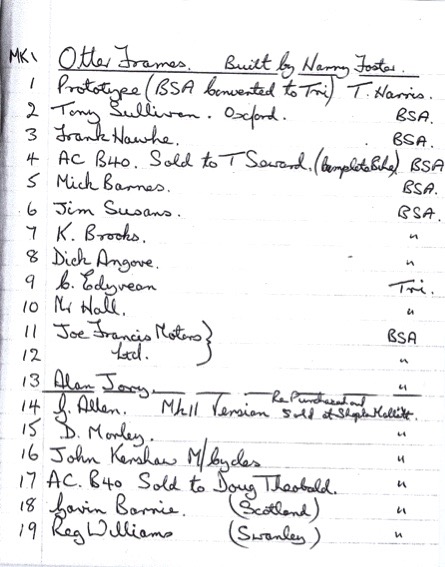 MK1 Otter Frames. Built by Nanny Foster.
1 Prototype (BSA Converted to Tri) T. Harris.
2 Tony Sullivan. Oxford. BSA.
3 Frank Hawke. BSA.
4 AC B40. Sold to T Seward. (Complete Bike) BSA
5 Mick Barnes. BSA.
6 Jim Susans. BSA.
7 K. Brooks. "
8 Dick Angove. "
9 C. Edyvean Tri.
10 Mr Hall. "
11 Joe Francis Motors } BSA
12 Ltd. "
13 Alan Jory. "
14 J. Allen. MkII Version Re Purchased and sold at Shepton Mallitt. "
15 D. Morley. "
16 John Kershaw M/cycles "
17 AC. B40 Sold to Doug Theobald. "
18 Gavin Barnie. (Scotland) "
19 Reg Williams (Swanley) "